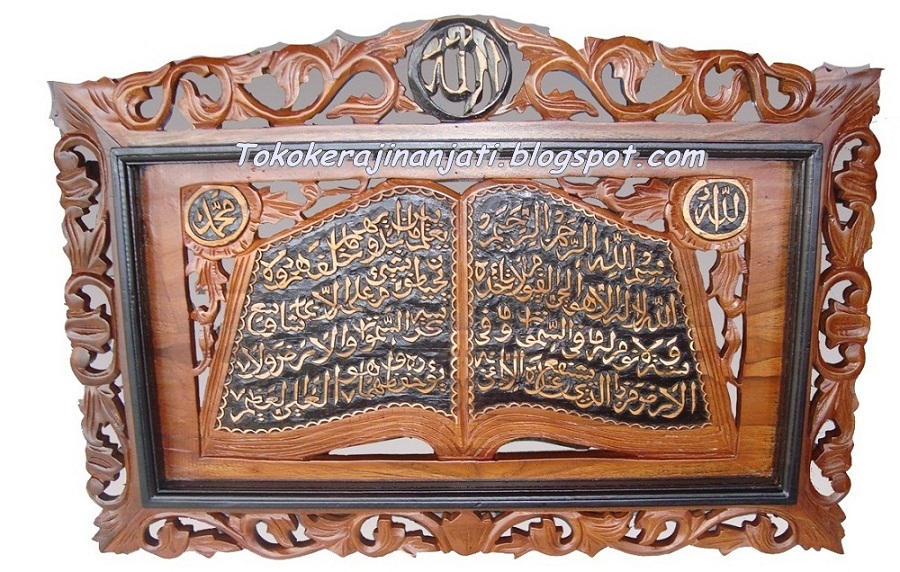 الله
Tokokerajinanjati.blogspot.com
الله
محمد
بسم الله الرحمن الرحيم
الله لا اله الا هو الحي القيوم لا تاخذه
سنة ولا نوم له ما في السموات وما في
الارض من ذا الذي يشفع عنده الا باذنه
يعلم ما بين ايديهم وما خلفهم ولا
يحيطون بشئ من علمه الا بما شاء وسع
كرسيه السموات والارض ولا
يؤده حفظهما وهو العلي العظيم